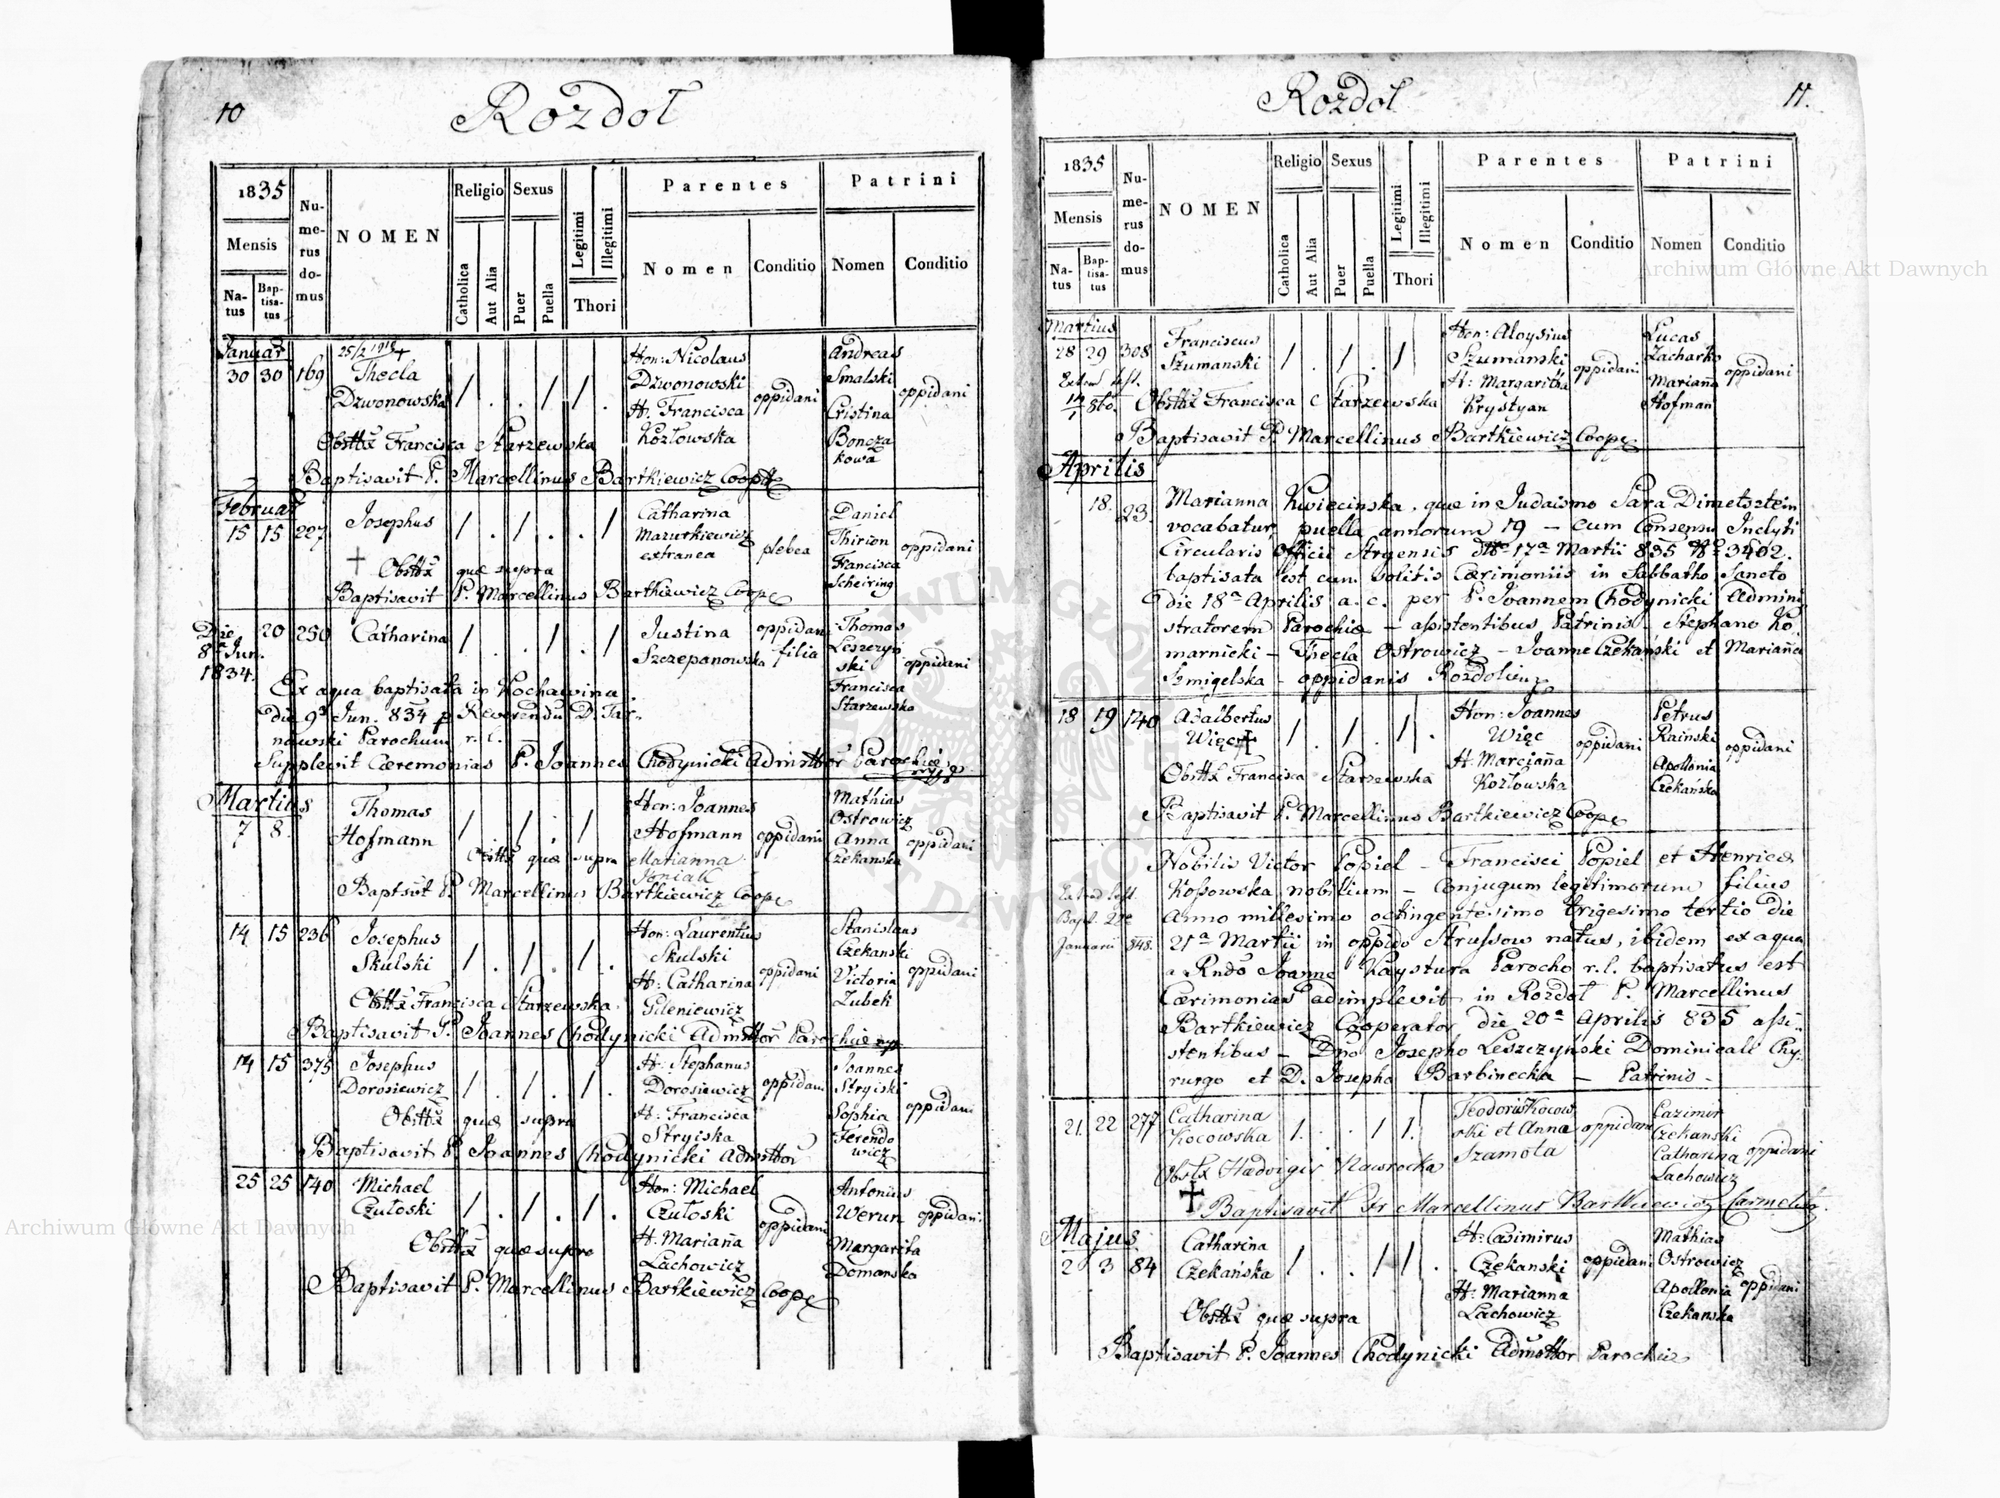 10
Rozdoł
1835
Mensis
Natus
Baptisatus
Numerus domus
NOMEN
Religio
Catholica
Aut Alia
Sexus
Puer
Puella
Legitimi
Illegitimi
Thori
Parentes
Nomen
Conditio
Patrini
Nomen
Conditio
Januar
30 30 169
25/2 1918 +
Thecla
Dzwonowska
/ . . / / .
Hon: Nicolaus
Dzwonowski
H. Francisca
Kozłowska
oppidani
Andreas
Smalski
Cristina
Boncza
kowa
oppidani
Obsttx Francisca Starzewska
Baptisavit P. Marcellinus Bartkiewicz Coop
Februar
15 15 227
Josephus
/ . / . . /
Catharina
Mazurkiewicz
extranea
plebea
Daniel
Thirion
Francisca
Scheiring
oppidani
+ Obsttx quæ supra
Baptisavit P. Marcellinus Bartkiewicz Coop
Die
8a Jun.
1834.
20 250
Catharina
/ . . / . /
Justina
Szczepanowska
oppidani
filia
Thomas
Leszczyń
ski
Francisca
Starzewska
oppidani
Ex aqua baptisata in Kochawina
die 9a Jun. 834 p Reverendu D. Tar-
nawski Parochum r. l.
Supplevit Cæremonias P. Joannes Chodynicki Admrttor Parochiæ
Martius
7 8
Thomas
Hofmann
/ . / . / .
Hon: Joannes
Hofmann
Marianna
oppidani
Mathias
Ostrowicz
Anna
Czekanska
oppidani
Obsttx quæ supra
Baptsvt P. Marcellinus Bartkiewicz Coop
14 15 236
Josephus
Skulski
/ . / . / .
Hon: Laurentius
Skulski
H: Catharina
Gileniewicz
oppidani
Stanislaus
Czekanski
Victoria
Zubek
oppidani
Obsttx Francisca Starzewska
Baptisavit P. Joannes Chodynicki Admttor Parochiæ
14 15 375
Josephus
Dorosiewicz
/ . / . / .
H: Stephanus
Dorosiewicz
H: Francisca
Stryiska
oppidani
Joannes
Stryiski
Sophia
Ferendo
wicz
oppidani
Obsttx quæ supra
Baptisavit P. Joannes Chodynicki Admttor
25 25 140
Michael
Czułoski
/ . / . / .
Hon: Michael
Czułoski
H: Mariaña
Lachowicz
oppidani
Antonius
Werun
Margarita
Domanska
oppidani
Obsttx quæ supra
Baptisavit P. Marcellinus Bartkiewicz Coop
Rozdoł
11.
1835
Mensis
Natus
Baptisatus
Numerus domus
NOMEN
Religio
Catholica
Aut Alia
Sexus
Puer
Puella
Legitimi
Illegitimi
Thori
Parentes
Nomen
Conditio
Patrini
Nomen
Conditio
Martius
28 29 308
Franciscus
Szumanski
/ . / . / .
Hon: Aloysius
Szumanski
H: Margaritha
Krystyan
oppidani
Lucas
Zacharko
Mariaña
Hofman
oppidani
Obsttx Francisca Starzewska
Baptisavit P. Marcellinus Bartkiewicz Coop
Aprilis
18. 23.
Marianna Kwiecinska, quæ in Judaismo Sara Dimetsztein
vocabatur, puella annorum 19 – cum Consensu Inclyti
Circularis Officii Stryensis dto 17a Martii 835 No 3402.
baptisata est cum solitis Cærimoniis in Sabbatho Sancto
die 18a Aprilis a. c. per P. Joannem Chodynicki Admini
stratorem Parochiæ – assistentibus Patrinis – Stephano Ko
marnicki – Thecla Ostrowicz – Joanne Czekański et Mariaña
Szmigelska – oppidanis Rozdoliens
18 19 140
Adalbertus
Więc +
/ . / . / .
Hon: Joannes
Więc
H: Marciaña
Kozłowska
oppidani
Petrus
Rainski
Apollonia
Czekańska
oppidani
Obsttx Francisca Starzewska
Baptisavit P. Marcellinus Bartkiewicz Coop
Extrad test.
Bapt. 22e
Januarii 848.
Nobilis Victor Popiel – Francisci Popiel et Henricæ
Kossowska nobilium – Conjugum legitimorum filius
Anno millesimo octingentesimo trigesimo tertio die
21a Martii in oppido Strussow natus, ibidem ex aqua
a Rndo Joanne Kaystura Parocho r. l. baptisatus est
Cærimonias adimplevit in Rozdoł P. Marcellinus
Bartkiewicz Cooperator die 20a Aprilis 835 assi-
stentibus – Dno Josepho Leszczyński Dominicali Chy-
rurgo et D. Josepha Barbinecka – Patrinis –
21. 22 277
Catharina
Kocowska
/ . . / / .
Teodorus Kocow
ski et Anna
Szamota
oppidani
Cazimir
Czekanski
Catharina
Lachowicz
oppidani
Obsttx Hedvigis Nawrocka
+ Baptisavit Fr Marcellinus Bartkiewicz Carmelita.
Majus
2 3 84
Catharina
Czekańska
/ . . / / .
H: Casimirus
Czekanski
H: Marianna
Lachowicz
oppidani
Mathias
Ostrowicz
Apollonia
Czekanska
oppidani
Obsttx quæ supra
Baptisavit P. Joannes Chodynicki Admttor Parochiæ
Archiwum Główne Akt Dawnych
Archiwum Główne Akt Dawnych